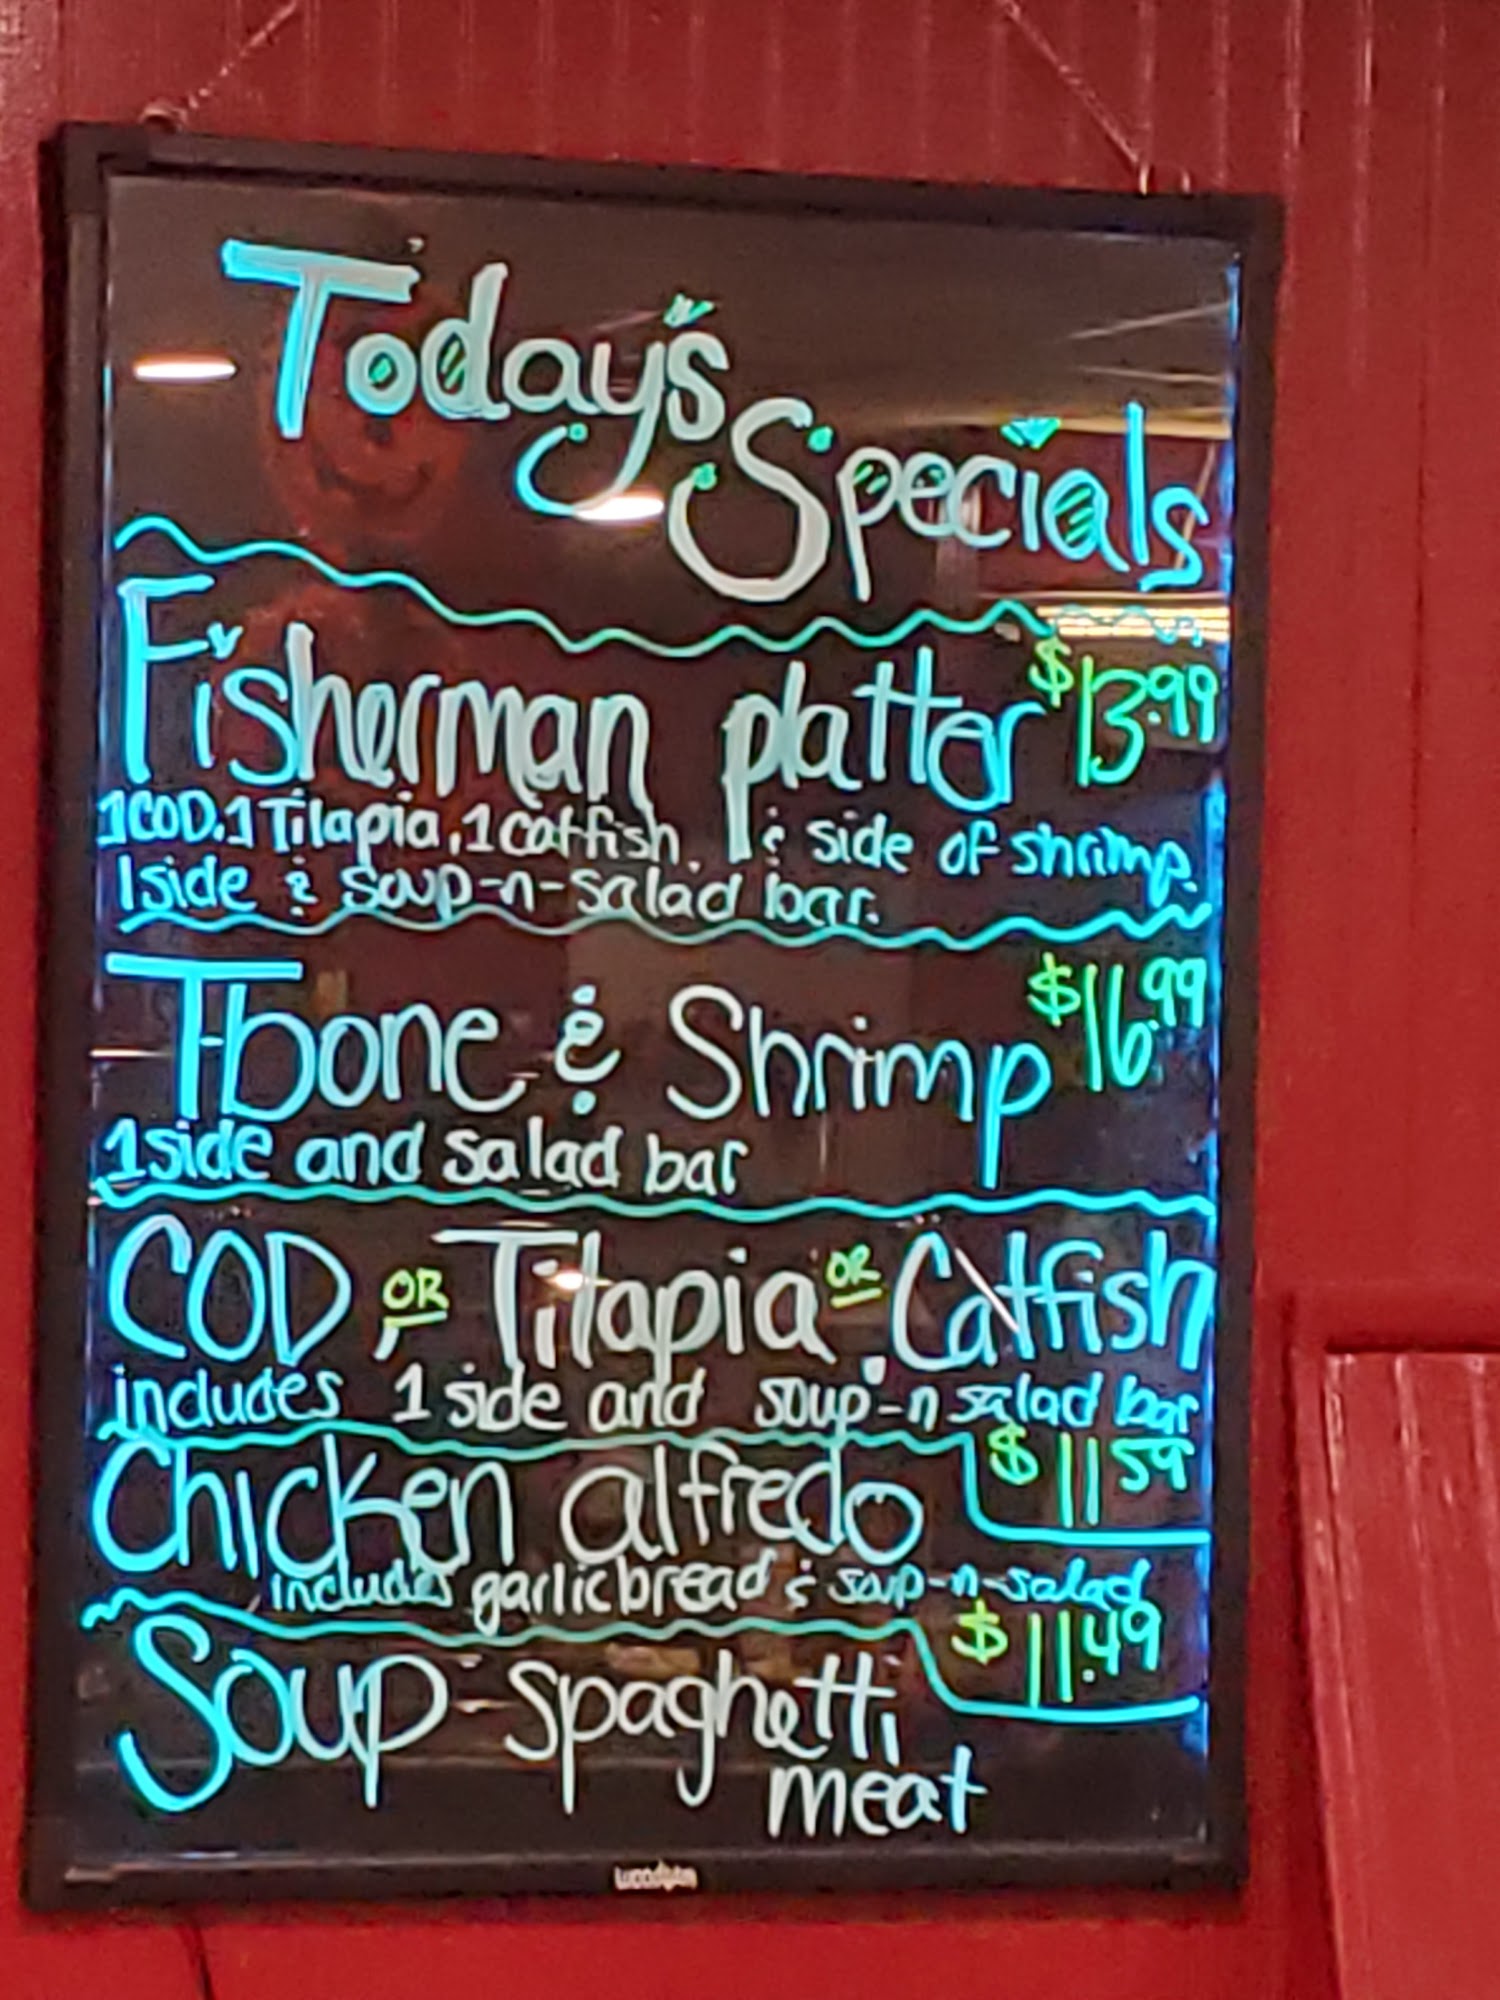 Today's
Specials
Fisherman platter $13.99
1COD.1Tilapia,1catfish. & side of shrimp.
1side & soup-n-salad bar.
Tbone & Shrimp $16.99
1side and salad bar
COD, OR Tilapia OR Catfish
includes 1 side and soup-n salad bar
$11 59
Chicken alfredo
includes garlicbread & soup-n-salad
$11.49
Soup-spaghetti
meat